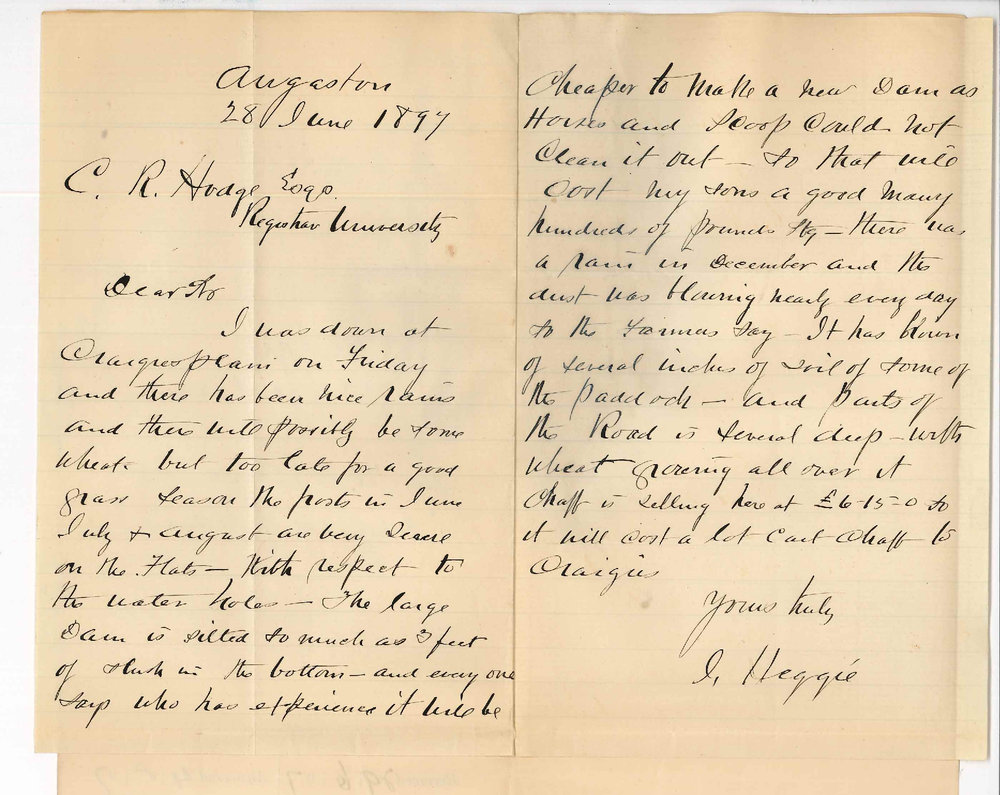 Angaston
28 June 1897
C. R. Hodge Esqr.
Registrar University
Dear Sir
I was down at
on Friday
and there has been nice rains
and there will possibly be some
wheat but too late for a good
grass season the frosts in June
July & August are very severe
on the Flats – With respect to
the water holes – The large
Dam is silted so much as 3 feet
of slush in the bottom – and every one
says who has experience it will be
Cheaper to make a new Dam as
Horses and Scoop Could not
Clean it out – so that will
Cost my sons a good many
hundreds of pounds Stg – there was
a rain in December and the
dust was blowing nearly every day
so the Farmers say – It has blown
of several inches of soil of some of
the Paddock – and parts of
the Road is several deep – with
wheat growing all over it
Chaff is selling here at £6-15-0 so
it will cost a lot Cart Chaff to
Craigies
Yours truly
J. Heggie